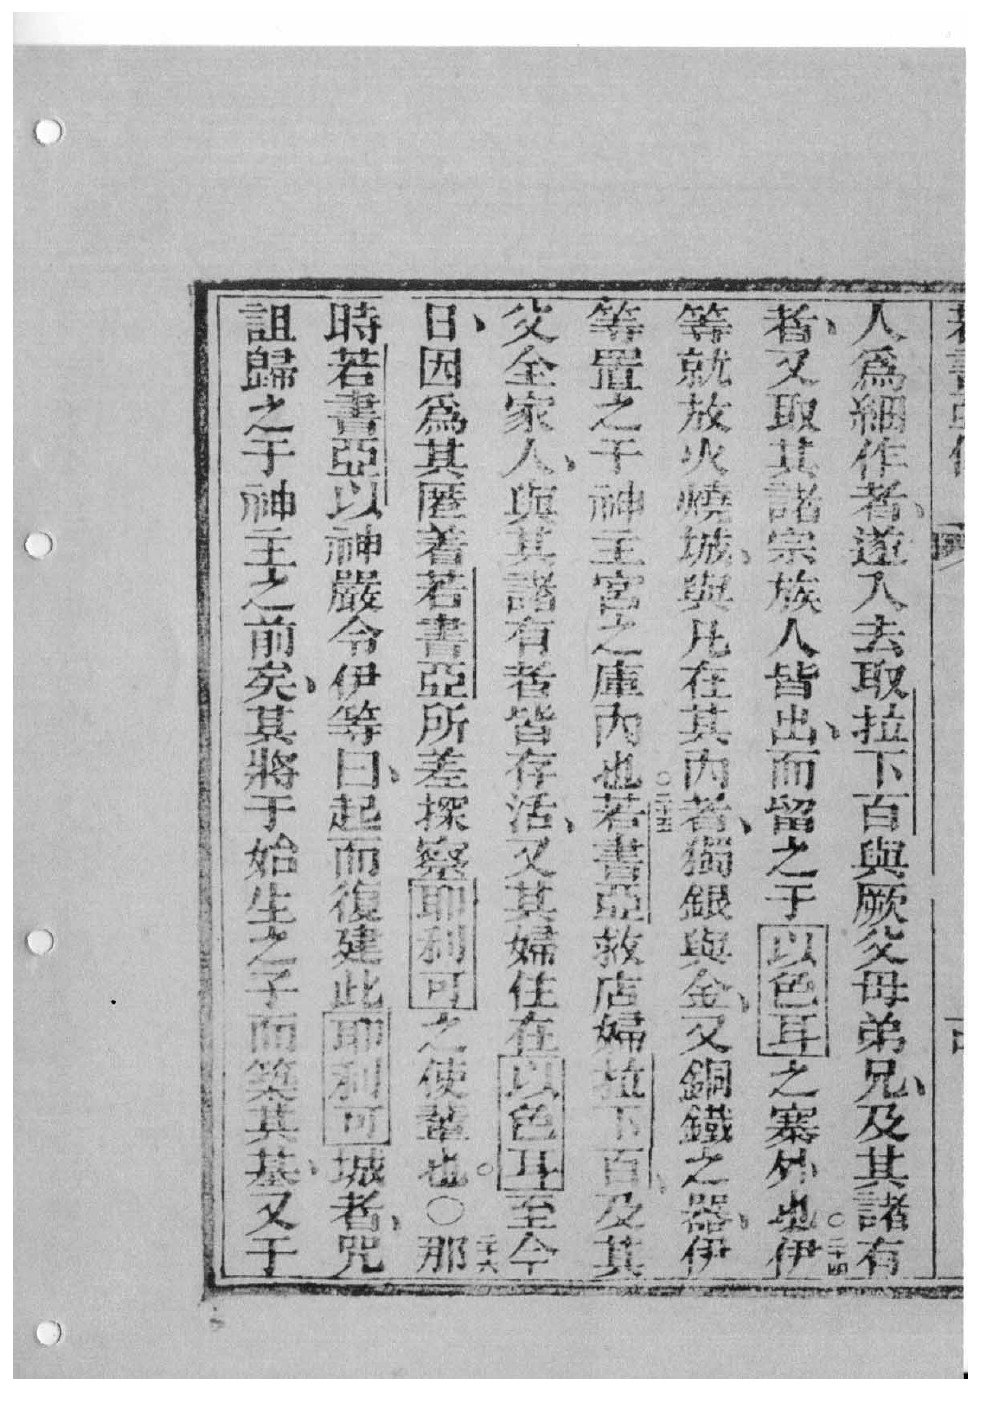 人爲細作者、遂入去取拉下百與厥父母弟兄、及其諸有
者、又取其諸宗族人皆出、而留之于以色耳之寨外也。二十四伊
等就放火燒城、與凡在其內者、獨銀與金、又銅鐵之器、伊
等置之于神主宮之庫內也。二十五若書亞救店婦拉下百、及其
父全家人、與其諸有者皆存活、又其婦住在以色耳至今
日、因爲其匿着若書亞所差探察耶利可之使輩也。○二十六那
時若書亞以神嚴令伊等曰、起而復建此耶利可城者、咒
詛歸之于神主之前矣、其將于始生之子而築其基、又于